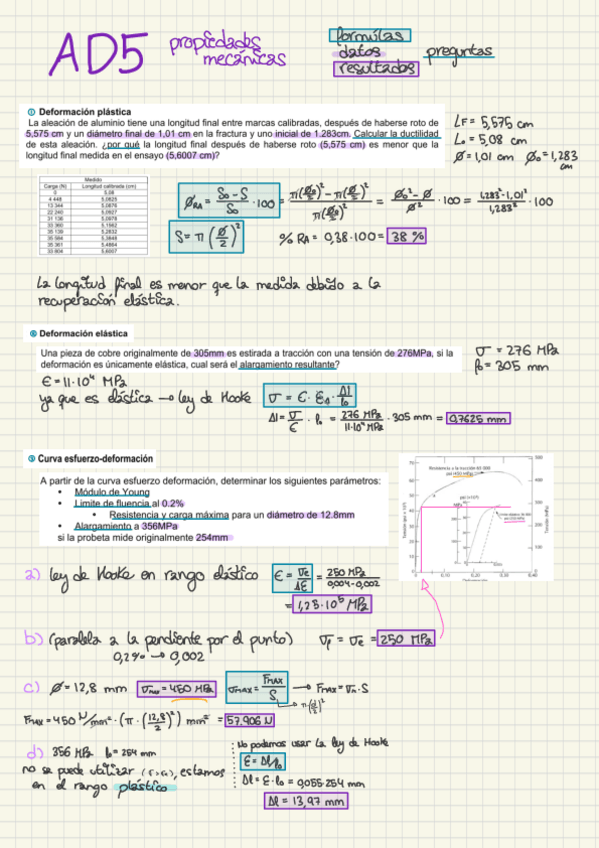 AD5 propiedades mecánicas
formulas
datos
resultados
preguntas
① Deformación plástica
La aleación de aluminio tiene una longitud final entre marcas calibradas, después de haberse roto de
5,575 cm y un diámetro final de 1,01 cm en la fractura y uno inicial de 1.283cm. Calcular la ductilidad
de esta aleación. ¿por qué la longitud final después de haberse roto (5,575 cm) es menor que la
longitud final medida en el ensayo (5,6007 cm)?
LF = 5,575 cm
L₀ = 5,08 cm
Ø = 1,01 cm Ø₀ = 1,283 cm
Medido
Carga (N) Longitud calibrada (cm)
0 5,08
4 448 5,0825
13 344 5,0876
22 240 5,0927
31 136 5,0978
33 360 5,1562
35 139 5,2832
35 584 5,3848
35 361 5,4864
33 804 5,6007
Ø_RA = (S₀ - S)/S₀ · 100 = (π(Ø₀/2)² - π(Ø/2)²)/(π(Ø₀/2)²) = (Ø₀² - Ø)/Ø² · 100 = (1,283² - 1,01²)/1,283² · 100
S = π (Ø/2)²
% RA = 0,38 · 100 = 38 %
La longitud final es menor que la medida debido a la
recuperación elástica.
② Deformación elástica
Una pieza de cobre originalmente de 305mm es estirada a tracción con una tensión de 276MPa, si la
deformación es únicamente elástica, cual será el alargamiento resultante?
σ = 276 MPa
l₀ = 305 mm
E = 11·10⁴ MPa
ya que es elástica → ley de Hooke
Δl = σ/E · l₀ = 276 MPa/11·10⁴ MPa · 305 mm = 0,7625 mm
③ Curva esfuerzo-deformación
A partir de la curva esfuerzo deformación, determinar los siguientes parámetros:
• Módulo de Young
• Limite de fluencia al 0.2%
• Resistencia y carga máxima para un diámetro de 12.8mm
• Alargamiento a 356MPa
si la probeta mide originalmente 254mm
Resistencia a la tracción 65 000
psi (450 MPa)
a) ley de Hooke en rango elástico E = σe/ΔE = 250 MPa/0,004-0,002
= 1,25·10⁵ MPa
b) (paralela a la pendiente por el punto) σf = σe = 250 MPa
0,2% → 0,002
c) Ø = 12,8 mm σmax = 450 MPa σmax = Fmax/S → Fmax = σm·S
π·(d/2)²
Fmax = 450 N/mm² · (π · (12,8/2)²) mm² = 57.906 N
d) 356 MPa l₀ = 254 mm
no se puede utilizar (σ>σe), estamos
en el rango plástico
No podemos usar la ley de Hooke
E = Δl/l₀
Δl = E·l₀ = 0,055·254 mm
Δl = 13,97 mm